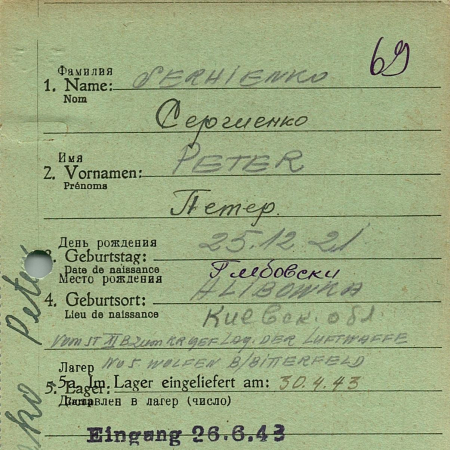 69
Фамилия
1. Name: SERHIENKO
Nom
Сергиенко
Имя
2. Vornamen: PETER
Prénoms
Петер.
День рождения
3. Geburtstag: 25.12.21
Date de naissance
Глебовски
Место рождения
4. Geburtsort: HLIBOWKA
Lieu de naissance
Киевск. обл.
VOM ST III B ZUM KR GEF LAG. DER LUFTWAFFE
No 5 WOLFEN B/BITTERFELD
Лагерь
5. Lager:
5a. Im Lager eingeliefert am: 30.4.43
Доставлен в лагерь (число)
Eingang 26.6.43
ko Peter